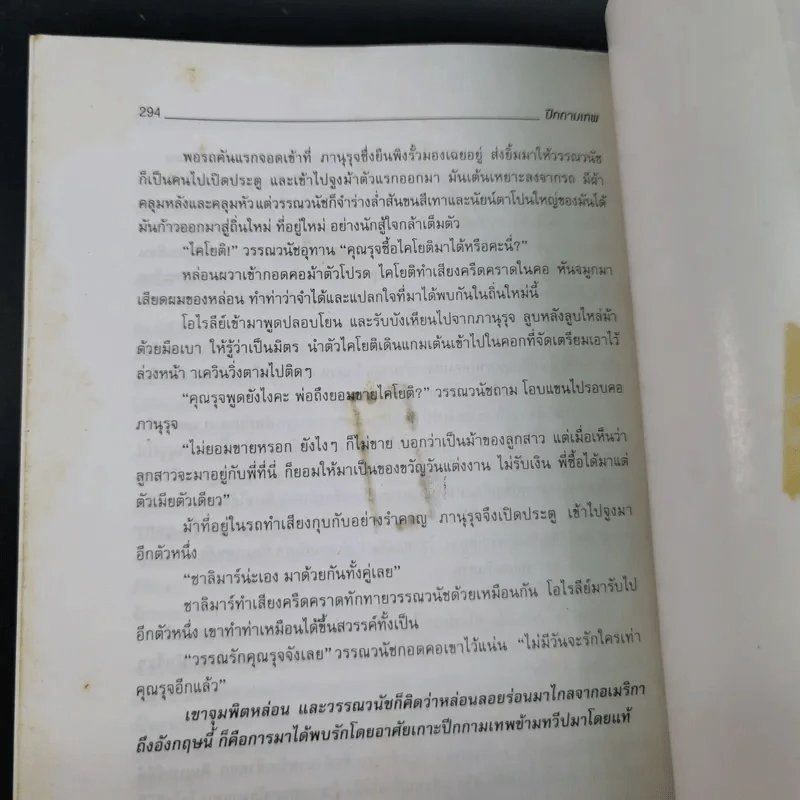 294
ปีกกามเทพ
พอรถคันแรกจอดเข้าที่ ภานุรุจซึ่งยืนพิงรั้วมองเฉยอยู่ ส่งยิ้มมาให้วรรณวนัช
ก็เป็นคนไปเปิดประตู และเข้าไปจูงม้าตัวแรกออกมา มันเต้นเหยาะลงจากรถ มีผ้า
คลุมหลังและคลุมหัวแต่วรรณวนัชก็จำร่างล่ำสันขนสีเทาและนัยน์ตาโปนใหญ่ของมันได้
มันก้าวออกมาสู่ถิ่นใหม่ ที่อยู่ใหม่ อย่างนักสู้ใจกล้าเต็มตัว
“ไคโยติ!” วรรณวนัชอุทาน “คุณรุจซื้อไคโยติมาได้หรือคะนี่?”
หล่อนผวาเข้ากอดคอม้าตัวโปรด ไคโยติทำเสียงครืดคราดในคอ หันจมูกมา
เสียดผมของหล่อน ทำท่าว่าจำได้และแปลกใจที่มาได้พบกันในถิ่นใหม่นี้
โอไรลีย์เข้ามาพูดปลอบโยน และรับบังเหียนไปจากภานุรุจ ลูบหลังลูบไหล่ม้า
ด้วยมือเบา ให้รู้ว่าเป็นมิตร นำตัวไคโยติเดินแกมเต้นเข้าไปในคอกที่จัดเตรียมเอาไว้
ล่วงหน้า าเควินวิ่งตามไปติดๆ
“คุณรุจพูดยังไงคะ พ่อถึงยอมขายไคโยติ?” วรรณวนัชถาม โอบแขนไปรอบคอ
ภานุรุจ
“ไม่ยอมขายหรอก ยังไงๆ ก็ไม่ขาย บอกว่าเป็นม้าของลูกสาว แต่เมื่อเห็นว่า
ลูกสาวจะมาอยู่กับพี่ที่นี่ ก็ยอมให้มาเป็นของขวัญวันแต่งงาน ไม่รับเงิน พี่ซื้อได้มาแต่
ตัวเมียตัวเดียว”
ม้าที่อยู่ในรถทำเสียงกุบกับอย่างรำคาญ ภานุรุจจึงเปิดประตู เข้าไปจูงมา
อีกตัวหนึ่ง
“ชาลิมาร์น่ะเอง มาด้วยกันทั้งคู่เลย”
ชาลิมาร์ทำเสียงครืดคราดทักทายวรรณวนัชด้วยเหมือนกัน โอไรลีย์มารับไป
อีกตัวหนึ่ง เขาทำท่าเหมือนได้ขึ้นสวรรค์ทั้งเป็น
“วรรณรักคุณรุจจังเลย” วรรณวนัชกอดคอเขาไว้แน่น “ไม่มีวันจะรักใครเท่า
คุณรุจอีกแล้ว”
เขาจุมพิตหล่อน และวรรณวนัชก็คิดว่าหล่อนลอยร่อนมาไกลจากอเมริกา
ถึงอังกฤษนี้ ก็คือการมาได้พบรักโดยอาศัยเกาะปีกกามเทพข้ามทวีปมาโดยแท้